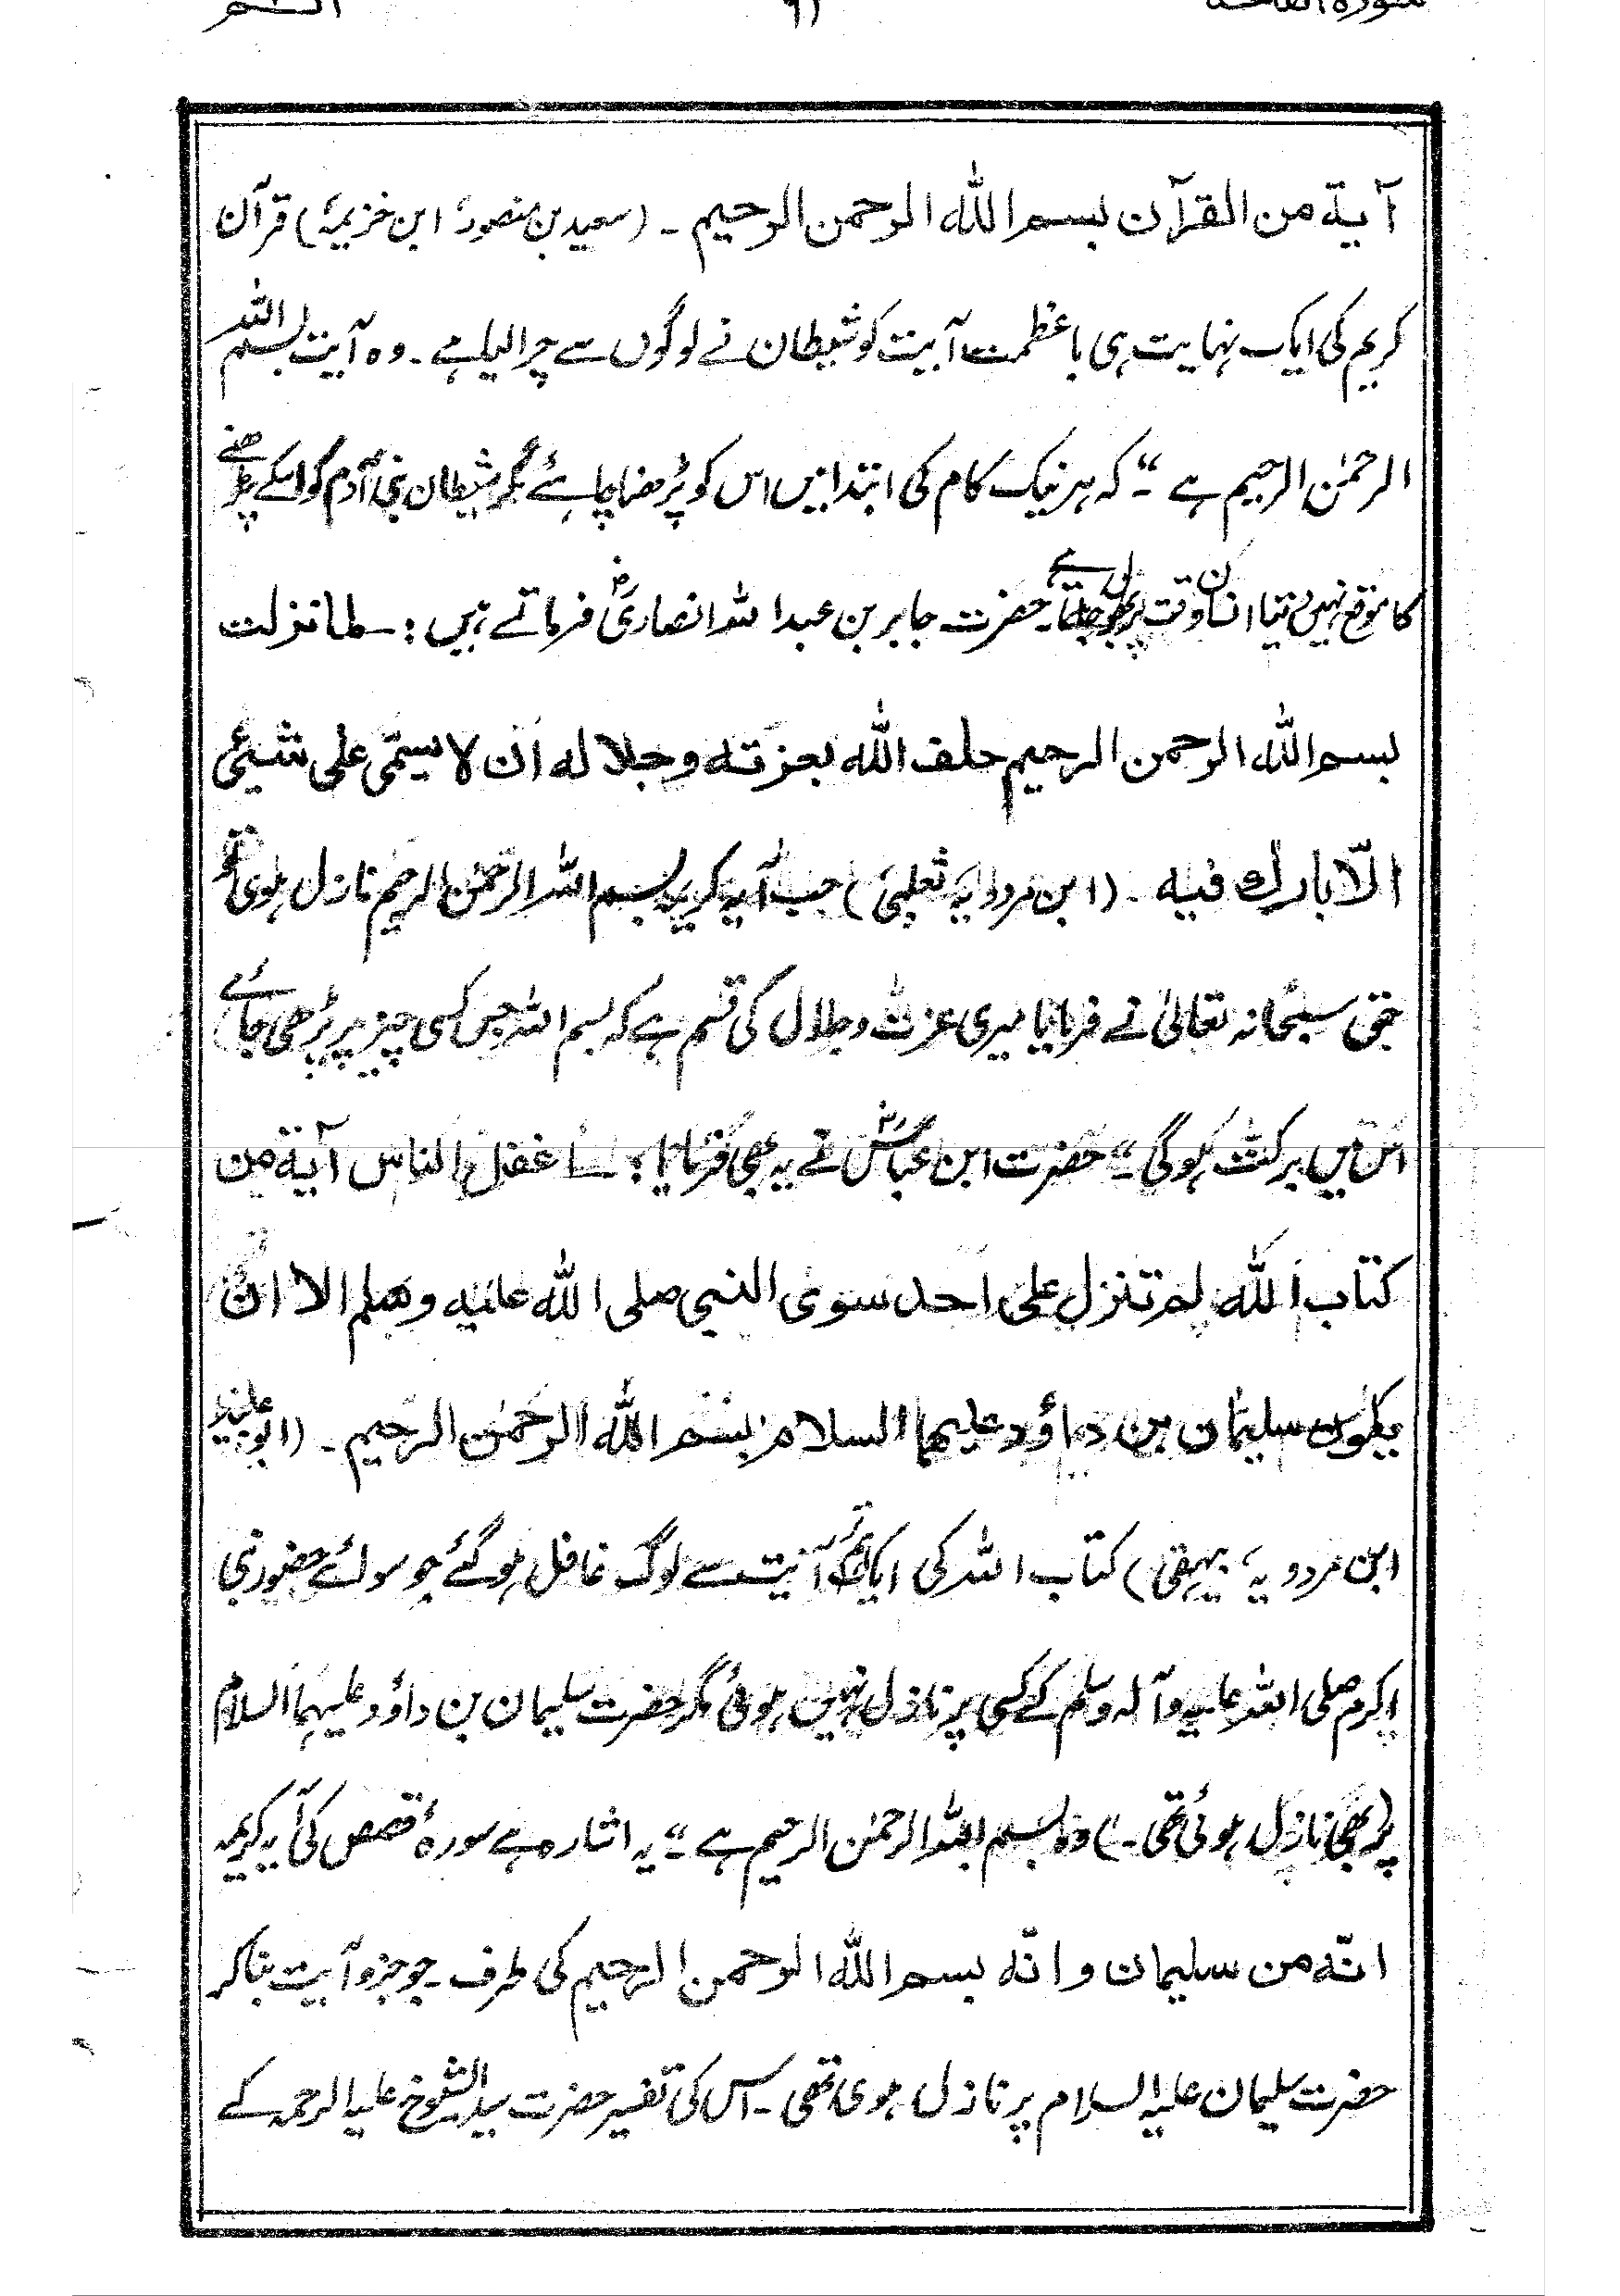 آية من القرآن بسم الله الرحمن الرحيم ۔ (سعید بن منصورؒ ابن خزیمہؒ) قرآن
کریم کی ایک نہایت ہی باعظمت آیت کو شیطان نے لوگوں سے چرالیا ہے ۔ وہ آیت بسم اللہ
الرحمٰن الرحیم ہے “۔ کہ ہر نیک کام کی ابتدا میں اس کو پڑھنا چاہئے مگر شیطان بنی آدم کو اسکے پڑھنے
کا موقع نہیں دیتا حضرت جابر بن عبداللہ انصاریؓ فرماتے ہیں : لما نزلت
بسم الله الرحمن الرحيم حلف الله بعزته وجلاله ان لا يسمّى على شيئی
الّا بارك فيه ۔ (ابن مردویہ ثعلبی) جب آیہ کریمہ بسم اللہ الرحمٰن الرحیم نازل ہوی تو
حق سبحانہ تعالیٰ نے فرمایا میری عزت و جلال کی قسم ہے کہ بسم اللہ جس کسی چیز پر پڑھی جائے
اس میں برکت ہوگی “۔ حضرت ابن عباسؓ نے یہ بھی فرمایا : اغفل الناس آية من
كتاب الله لم تنزل على احد سوى النبى صلى الله عليه وسلم الا ان
يكون سليمان بن داؤد عليهما السلام بسم الله الرحمٰن الرحيم ۔ (ابوعبید
ابن مردویہ، بیہقی) کتاب اللہ کی ایک آیت سے لوگ غافل ہوگئے جو سوائے حضور نبی
اکرم صلی اللہ علیہ وآلہ وسلم کے کسی پر نازل نہیں ہوئی مگر حضرت سلیمان بن داؤد علیہما السلام
پر بھی نازل ہوئی تھی ۔) وہ بسم اللہ الرحمٰن الرحیم ہے “۔ یہ اشارہ ہے سورۂ قصص کی آیہ کریمہ
انّه من سليمان وانّه بسم الله الرحمن الرحيم کی طرف ۔ جو جزو آیت بناکر
حضرت سلیمان علیہ السلام پر نازل ہوی تھی ۔ اس کی تفسیر حضرت سید الشیوخ علیہ الرحمہ کے